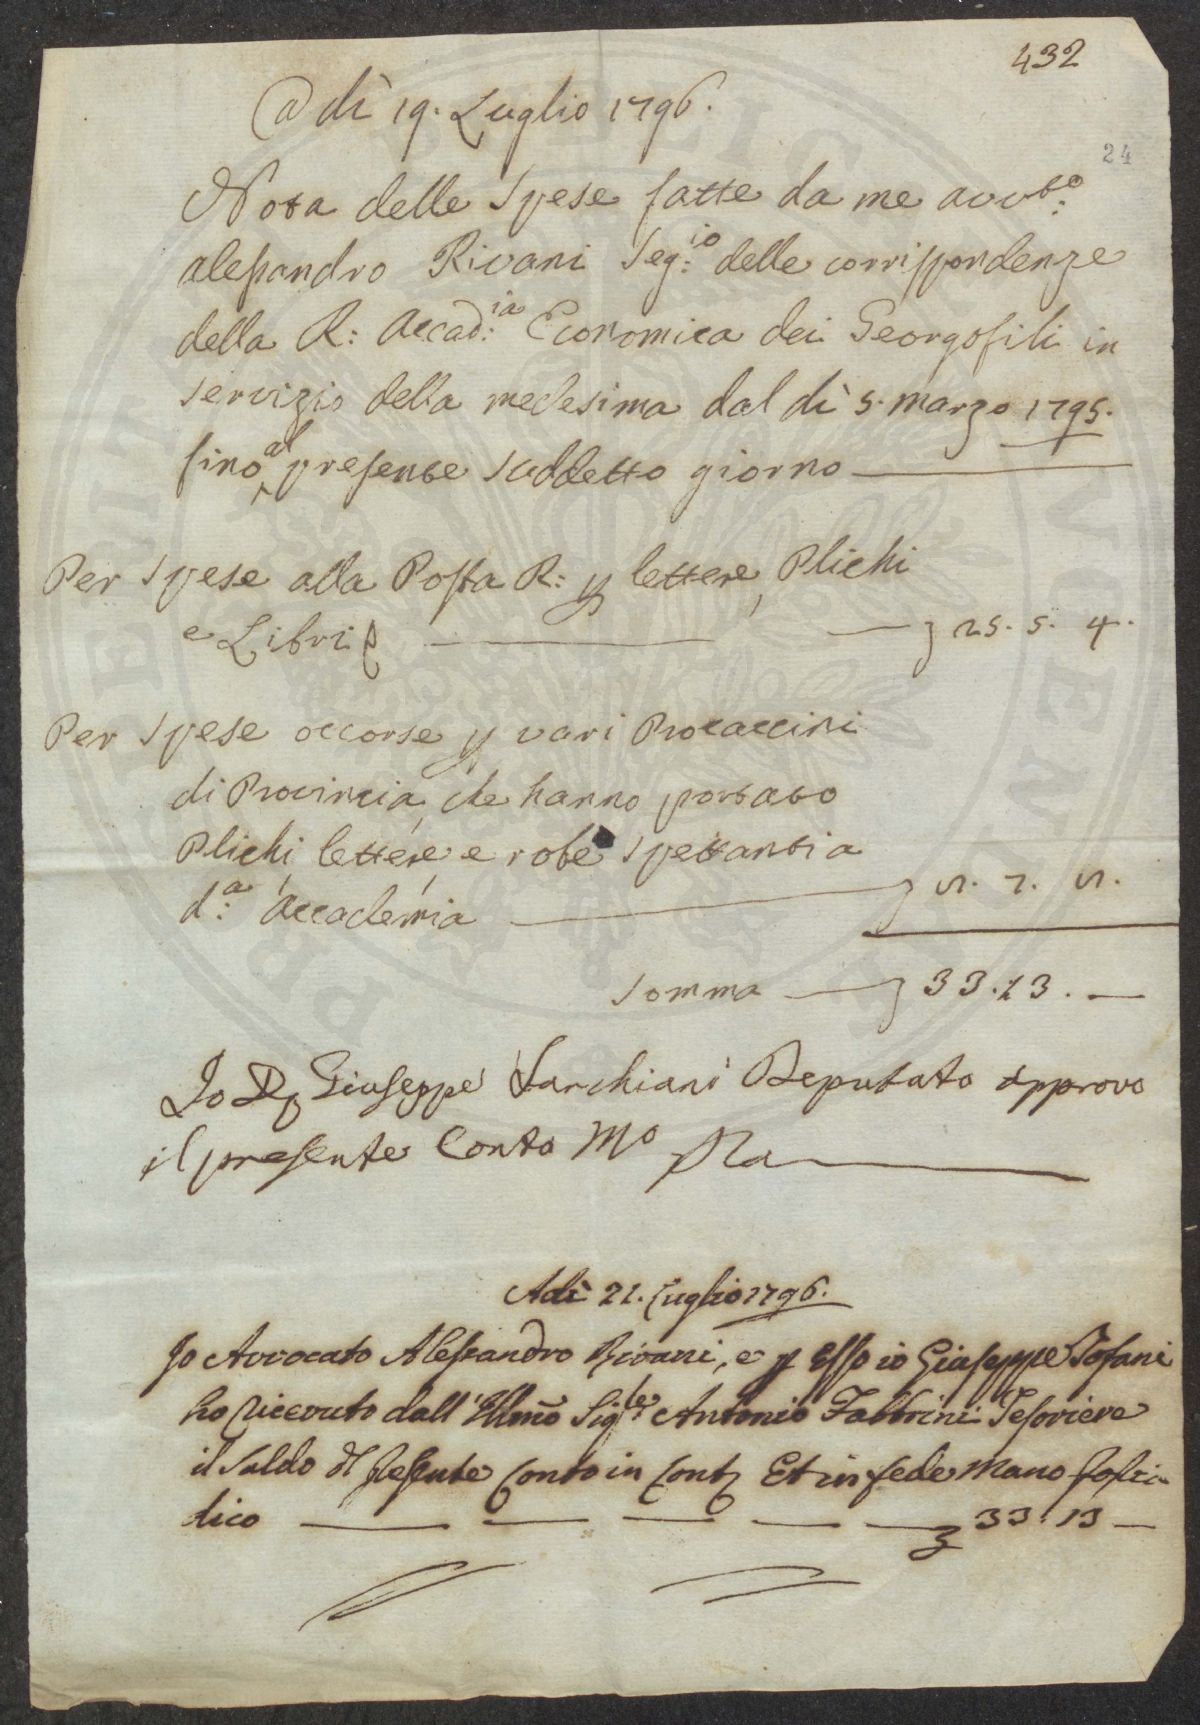 432
Adì 19. Luglio 1796.
24
Nota delle Spese fatte da me Avv.to
Alessandro Rivani Seg:io delle corrispondenze
della R: Accad:ia Economica dei Georgofili in
servizio della medesima dal dì 5. Marzo 1795.
fino al presente suddetto giorno
Per Spese alla Posta R: p lettere, Plichi
e Libri 25. 5. 4.
Per Spese occorse p vari Procaccini
di Provincia, che hanno portato
Plichi, lettere, e robe spettanti a
d:a Accademia
Somma 33.13.—
Io Giuseppe Sarchiani Deputato approvo
il presente Conto Mo Pa
Adì 21. Luglio 1796.
Io Avvocato Alessandro Rivani, e p Esso io Giuseppe Tofani
ho ricevuto dall'Illmo Sig.re Antonio Fabbrini Tesoriere
il Saldo del presente Conto in Conti Et in fede Mano
dico 33.13 —